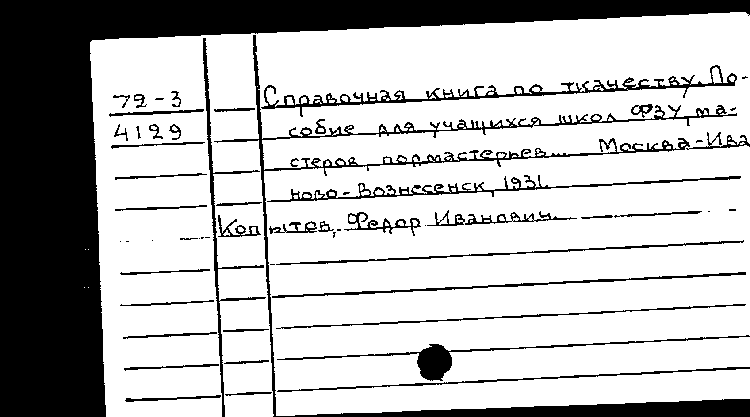 72-3
4129
Справочная книга по ткачеству. По-
собие для учащихся школ ФЗУ, ма-
стеров, подмастерьев... Москва-Ива
ново-Вознесенск, 1931.
Копытов, Федор Иванович.